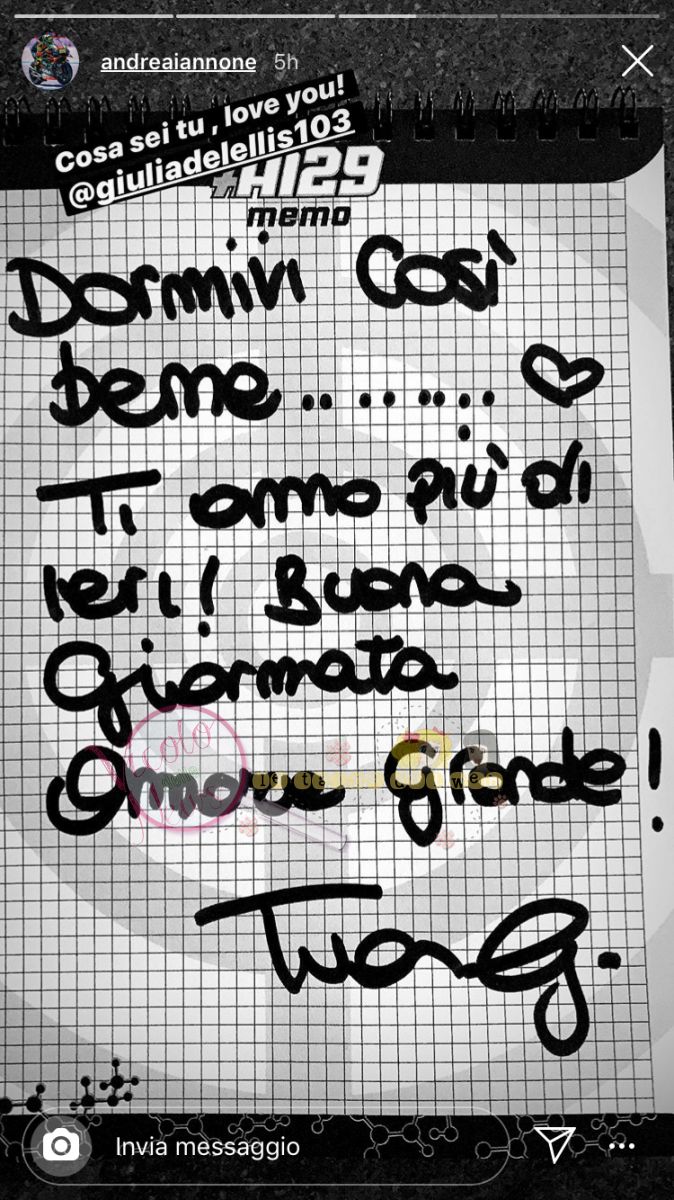 andreaiannone 5h
Cosa sei tu , love you!
@giuliadelellis103
#AI29
memo
Dormivi Così
bene...........
Ti amo più di
Ieri! Buona
Giornata
Amore Grande!
Tua G.
Invia messaggio